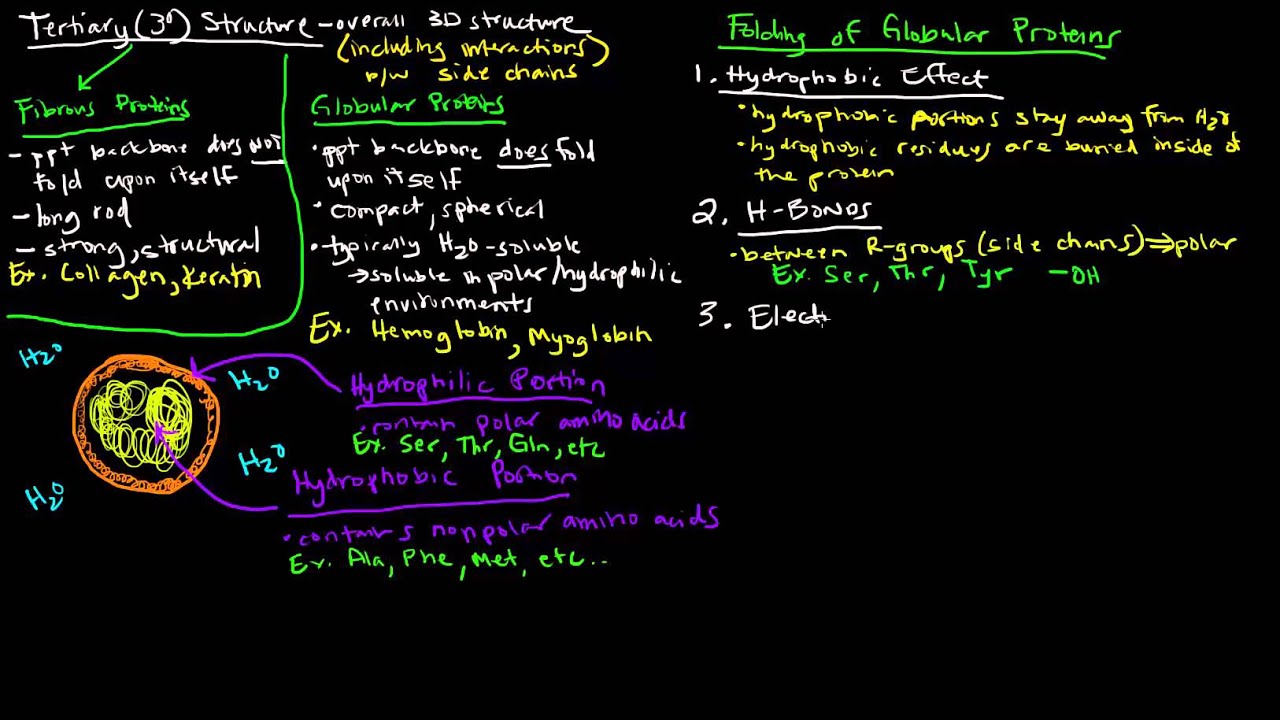 Tertiary (3°) Structure - overall 3D structure
(including interactions)
b/w side chains
Fibrous Proteins
- ppt backbone does NOT
fold upon itself
- long rod
- strong, structural
Ex. Collagen, Keratin
Globular Proteins
• ppt backbone does fold
upon itself
• compact, spherical
• typically H2O-soluble
→ soluble in polar/hydrophilic
environments
Ex. Hemoglobin, Myoglobin
H2O
H2O
H2O
H2O
Hydrophilic Portion
• contain polar amino acids
Ex. Ser, Thr, Gln, etc
Hydrophobic Portion
• contains nonpolar amino acids
Ex. Ala, Phe, Met, etc..
Folding of Globular Proteins
1. Hydrophobic Effect
• hydrophobic portions stay away from H2O
• hydrophobic residues are buried inside of
the protein
2. H-Bonds
• between R-groups (side chains) ⇒ polar
Ex. Ser, Thr, Tyr -OH
3. Elect